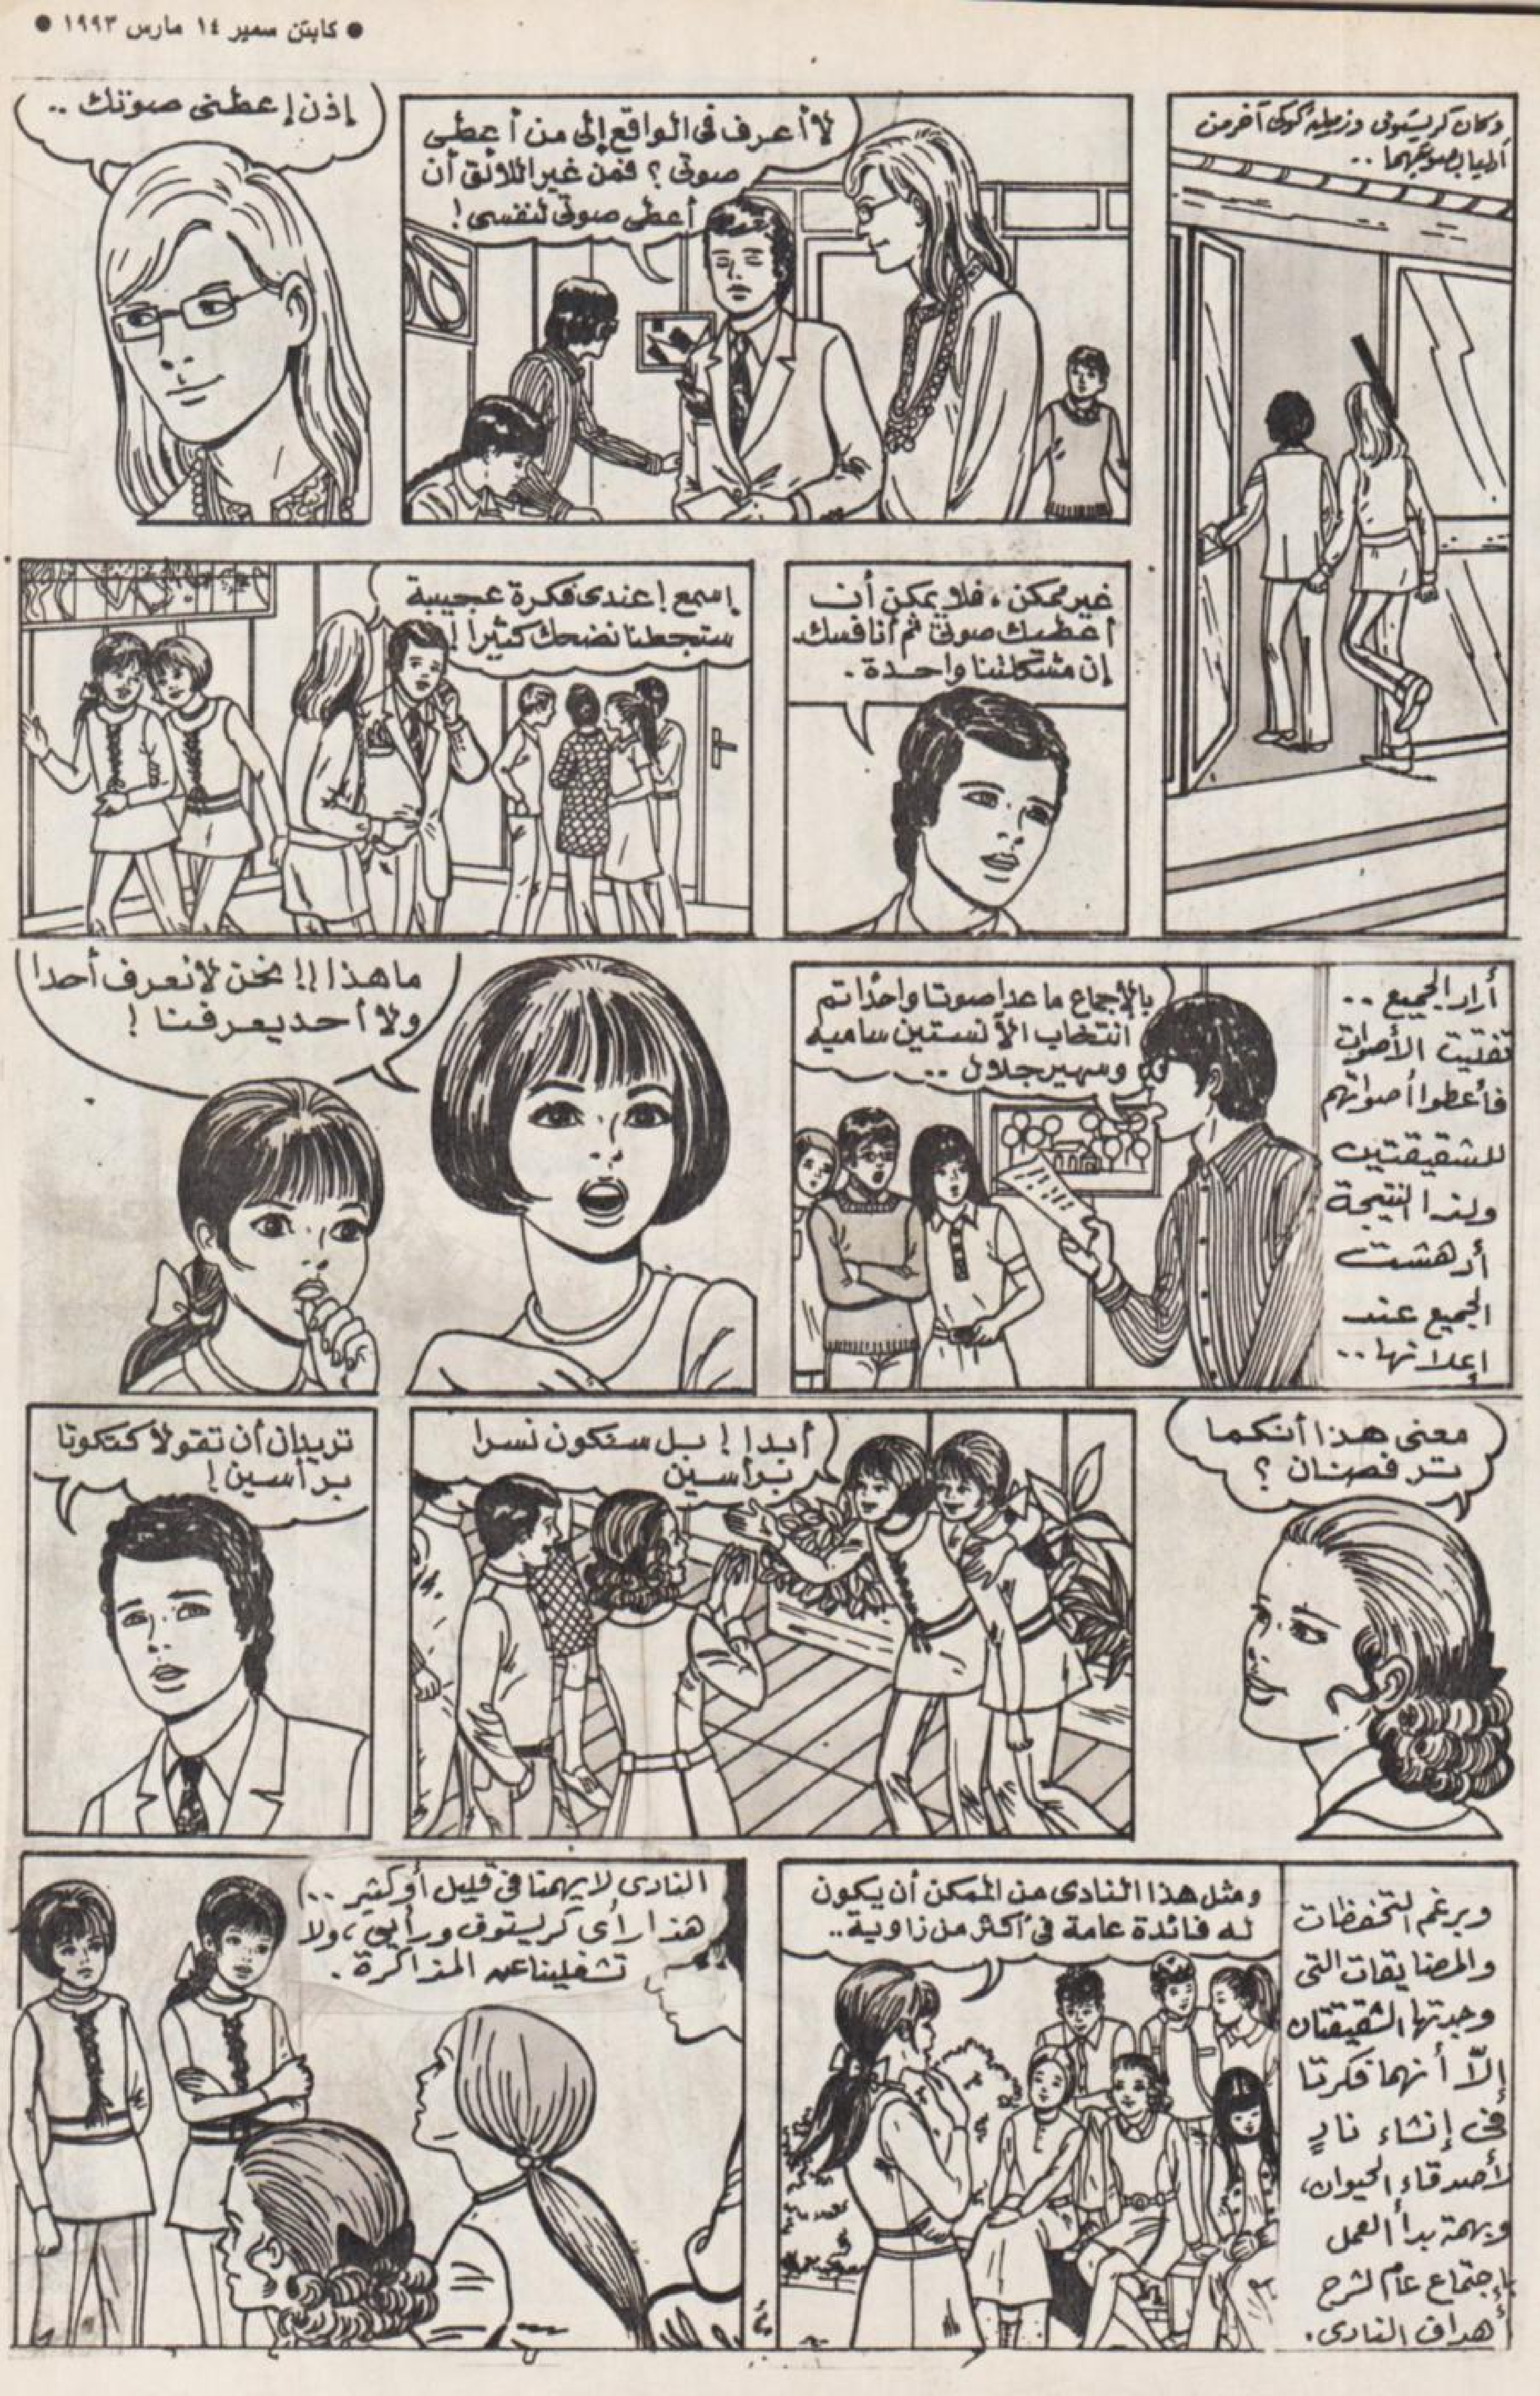 ● كابتن سمير ١٤ مارس ١٩٩٣ ●
وكان كريستوفى وزميله كوكى آخر من
أدليا بصوتيهما ..
لا أعرف فى الواقع إلى من أعطى
صوتى ؟ فمن غير اللائق أن
أعطى صوتى لنفسى !
إذن إعطنى صوتك ..
غير ممكن ، فلا يمكن أن
أعطيك صوتى ثم أنافسك
إن مشكلتنا واحدة .
إسمع ! عندى فكرة عجيبة
ستجعلنا نضحك كثيرا !
أراد الجميع ..
تفتيت الأصوات
فأعطوا أصواتهم
للشقيقتين
ولذا النتيجة
أدهشت
الجميع عند
إعلانها ..
بالإجماع ما عدا صوتا واحدا تم
انتخاب الآنستين ساميه
وسهير جلال ..
ما هذا !! نحن لا نعرف أحدا
ولا أحد يعرفنا !
معنى هذا أنكما
ترفضان ؟
أبدا ! بل سنكون نسرا
برأسين
تريدان أن تقولا كتكوتا
برأسين !
وبرغم التحفظات
والمضايقات التى
وجدتها الشقيقتان
إلّا أنهما فكرتا
فى إنشاء نادٍ
لأصدقاء الحيوان،
وبهمة بدأ العمل
بإجتماع عام لشرح
أهداف النادى .
ومثل هذا النادى من الممكن أن يكون
له فائدة عامة فى أكثر من زاوية ..
النادى لا يهمنا فى قليل أو كثير ..
هذا رأى كريستوفى ورأيى ، ولا
تشغلينا عن المذاكرة .